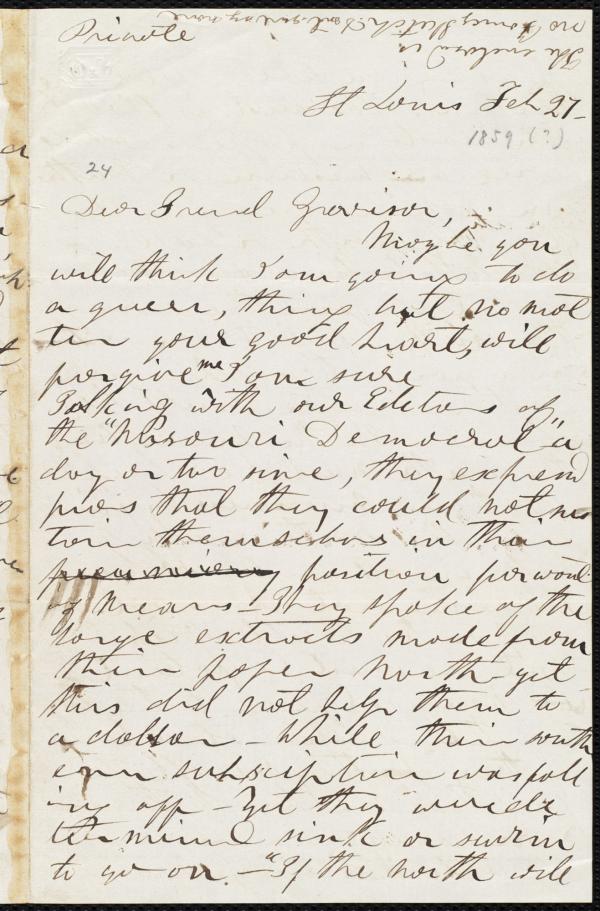 Private
The enclosed is
no
St Louis Feb 27-
1859 (?)
24
Dear Friend Garrison,
Maybe you
will think I am going to do
a queer, thing but no mat
ter your good heart, will
forgive me I am sure
Talking with our Editors of
the "Missouri Democrat" a
day or two since, they expressed
fears that they could not sus
tain themselves in their
pecuniary position for want
of means - They spoke of the
large extracts made from
their paper North - yet
this did not help them to
a dollar - While their south
ern subscription was fall
ing off - Yet they were de
termined sink or swim
to go on - "If the north will